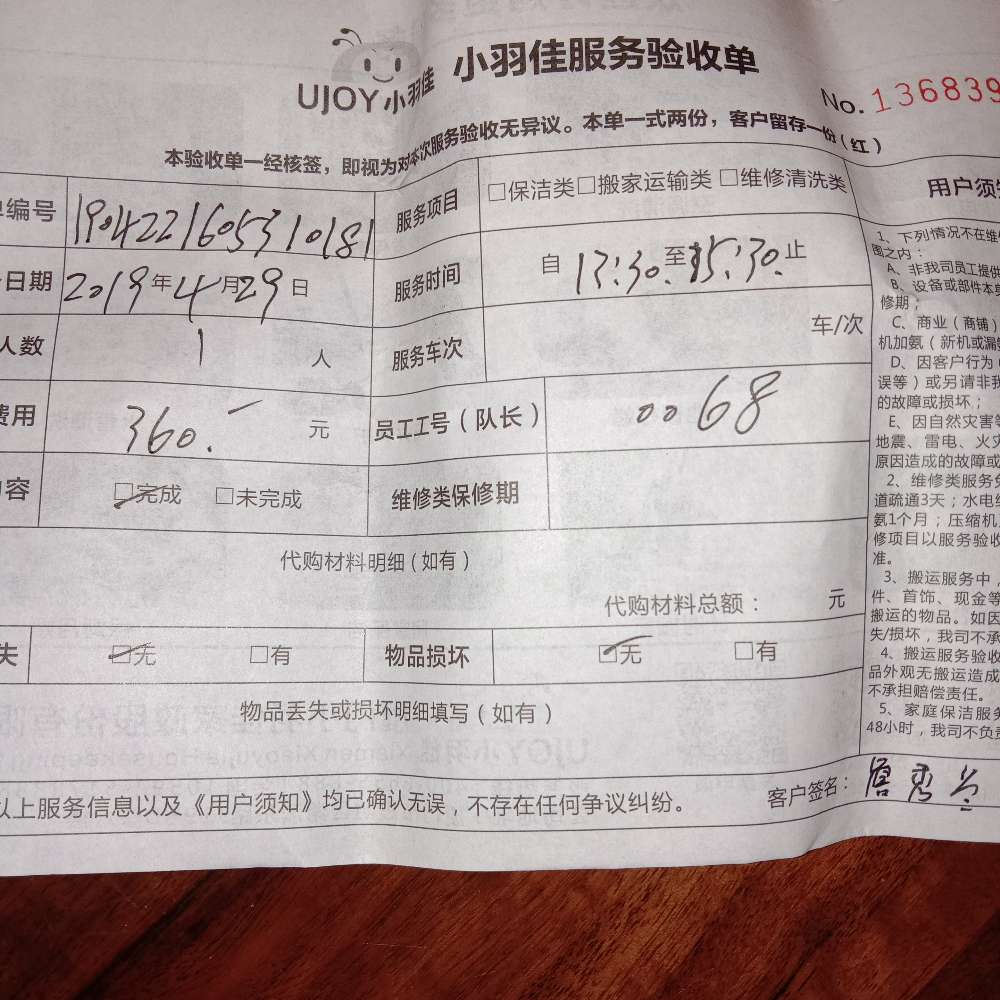 UJOY小羽佳 小羽佳服务验收单
No. 136839
本验收单一经核签，即视为对本次服务验收无异议。本单一式两份，客户留存一份（红）
单编号 1904221605310181 服务项目 □保洁类□搬家运输类 □维修清洗类
日期 2019年4月29日 服务时间 自 13:30. 至 15:30. 止
人数 1 人 服务车次 车/次
费用 360.- 元 员工工号（队长） 0068
内容 □完成 □未完成 维修类保修期
代购材料明细（如有）
代购材料总额： 元
失 □无 □有 物品损坏 □无 □有
物品丢失或损坏明细填写（如有）
以上服务信息以及《用户须知》均已确认无误，不存在任何争议纠纷。 客户签名：
用户须知
1、下列情况不在维
围之内：
A、非我司员工提供
B、设备或部件本身
修期；
C、商业（商铺）
机加氨（新机或漏
D、因客户行为（
误等）或另请非我
的故障或损坏；
E、因自然灾害等
地震、雷电、火灾
原因造成的故障或
2、维修类服务免
道疏通3天；水电维
氨1个月；压缩机
修项目以服务验收
准。
3、搬运服务中，
件、首饰、现金等
搬运的物品。如因
失/损坏，我司不承
4、搬运服务验收
品外观无搬运造成
不承担赔偿责任。
5、家庭保洁服务
48小时，我司不负责